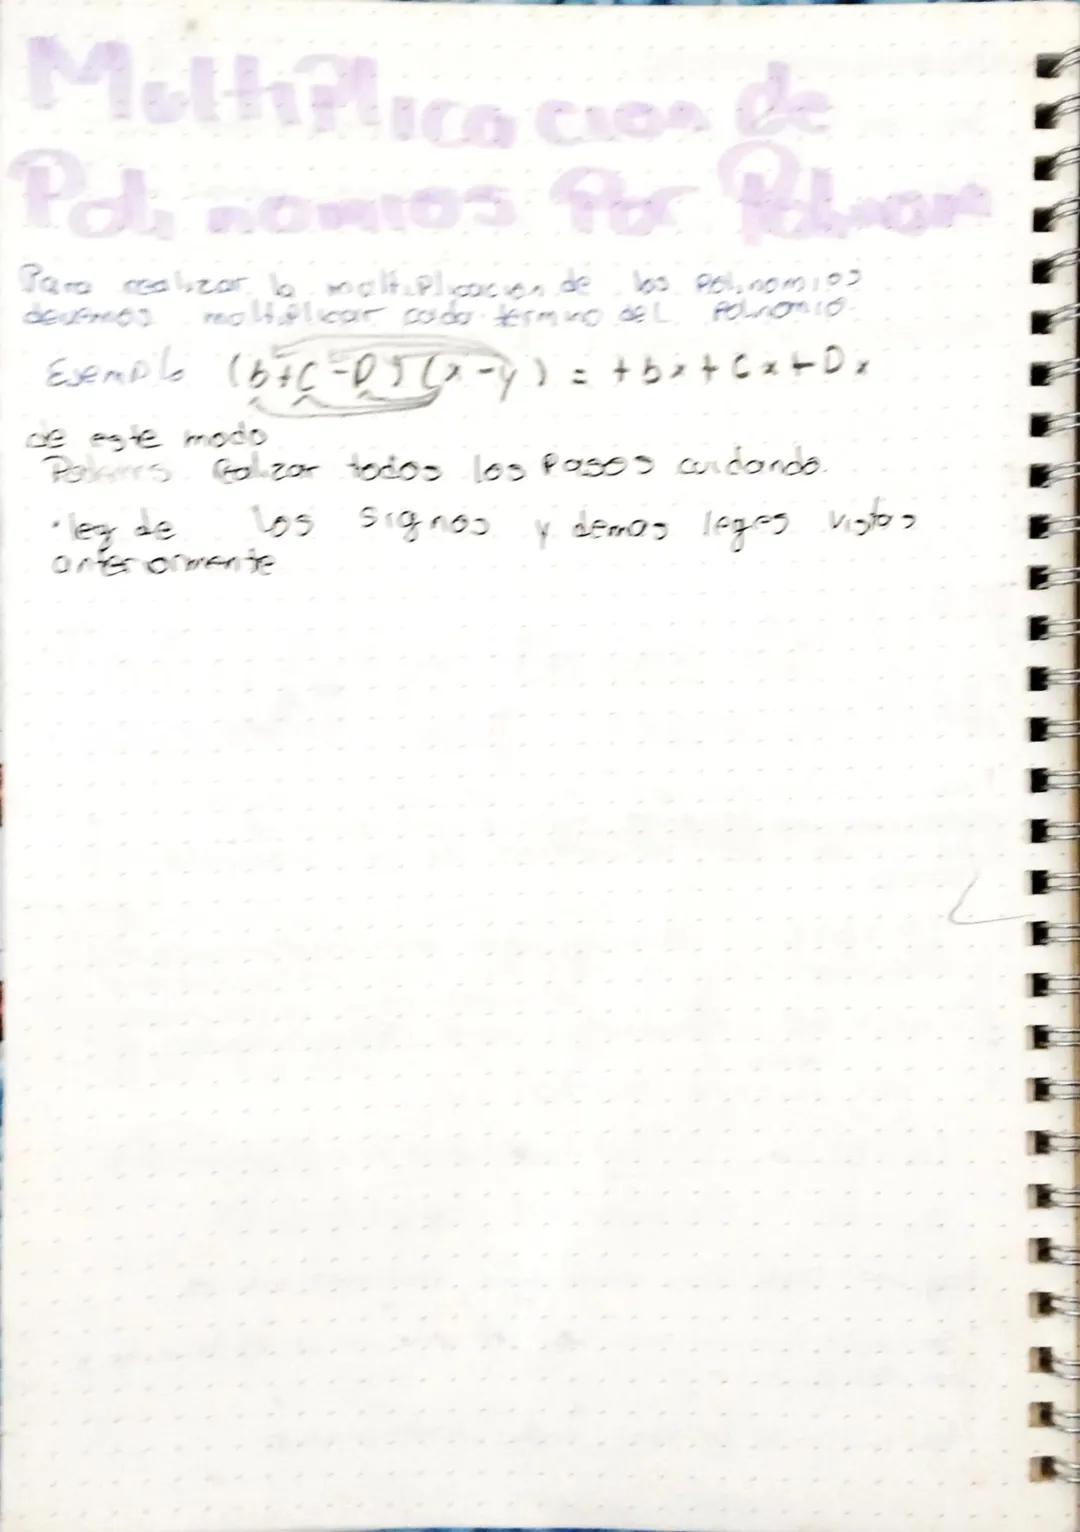 Multiplicacion de
Polinomios Por Polinom
Para realizar la multiplicacion de los polinomios
devemos multiplicar cada termino del Polinomio.
Ejemplo (b+C-D)(x-y) = +bx+Cx+Dx
de este modo
realizar todos los Pasos cuidando.
·ley de los signos y demas leyes vistas
anteriormente